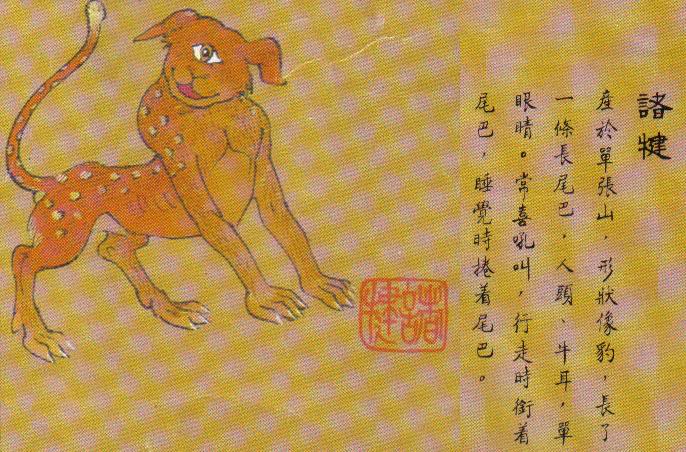 諸犍
產於單張山，形狀像豹，長了
一條長尾巴，人頭、牛耳，單
眼睛。常喜吼叫，行走時銜着
尾巴，睡覺時捲着尾巴。
諸犍